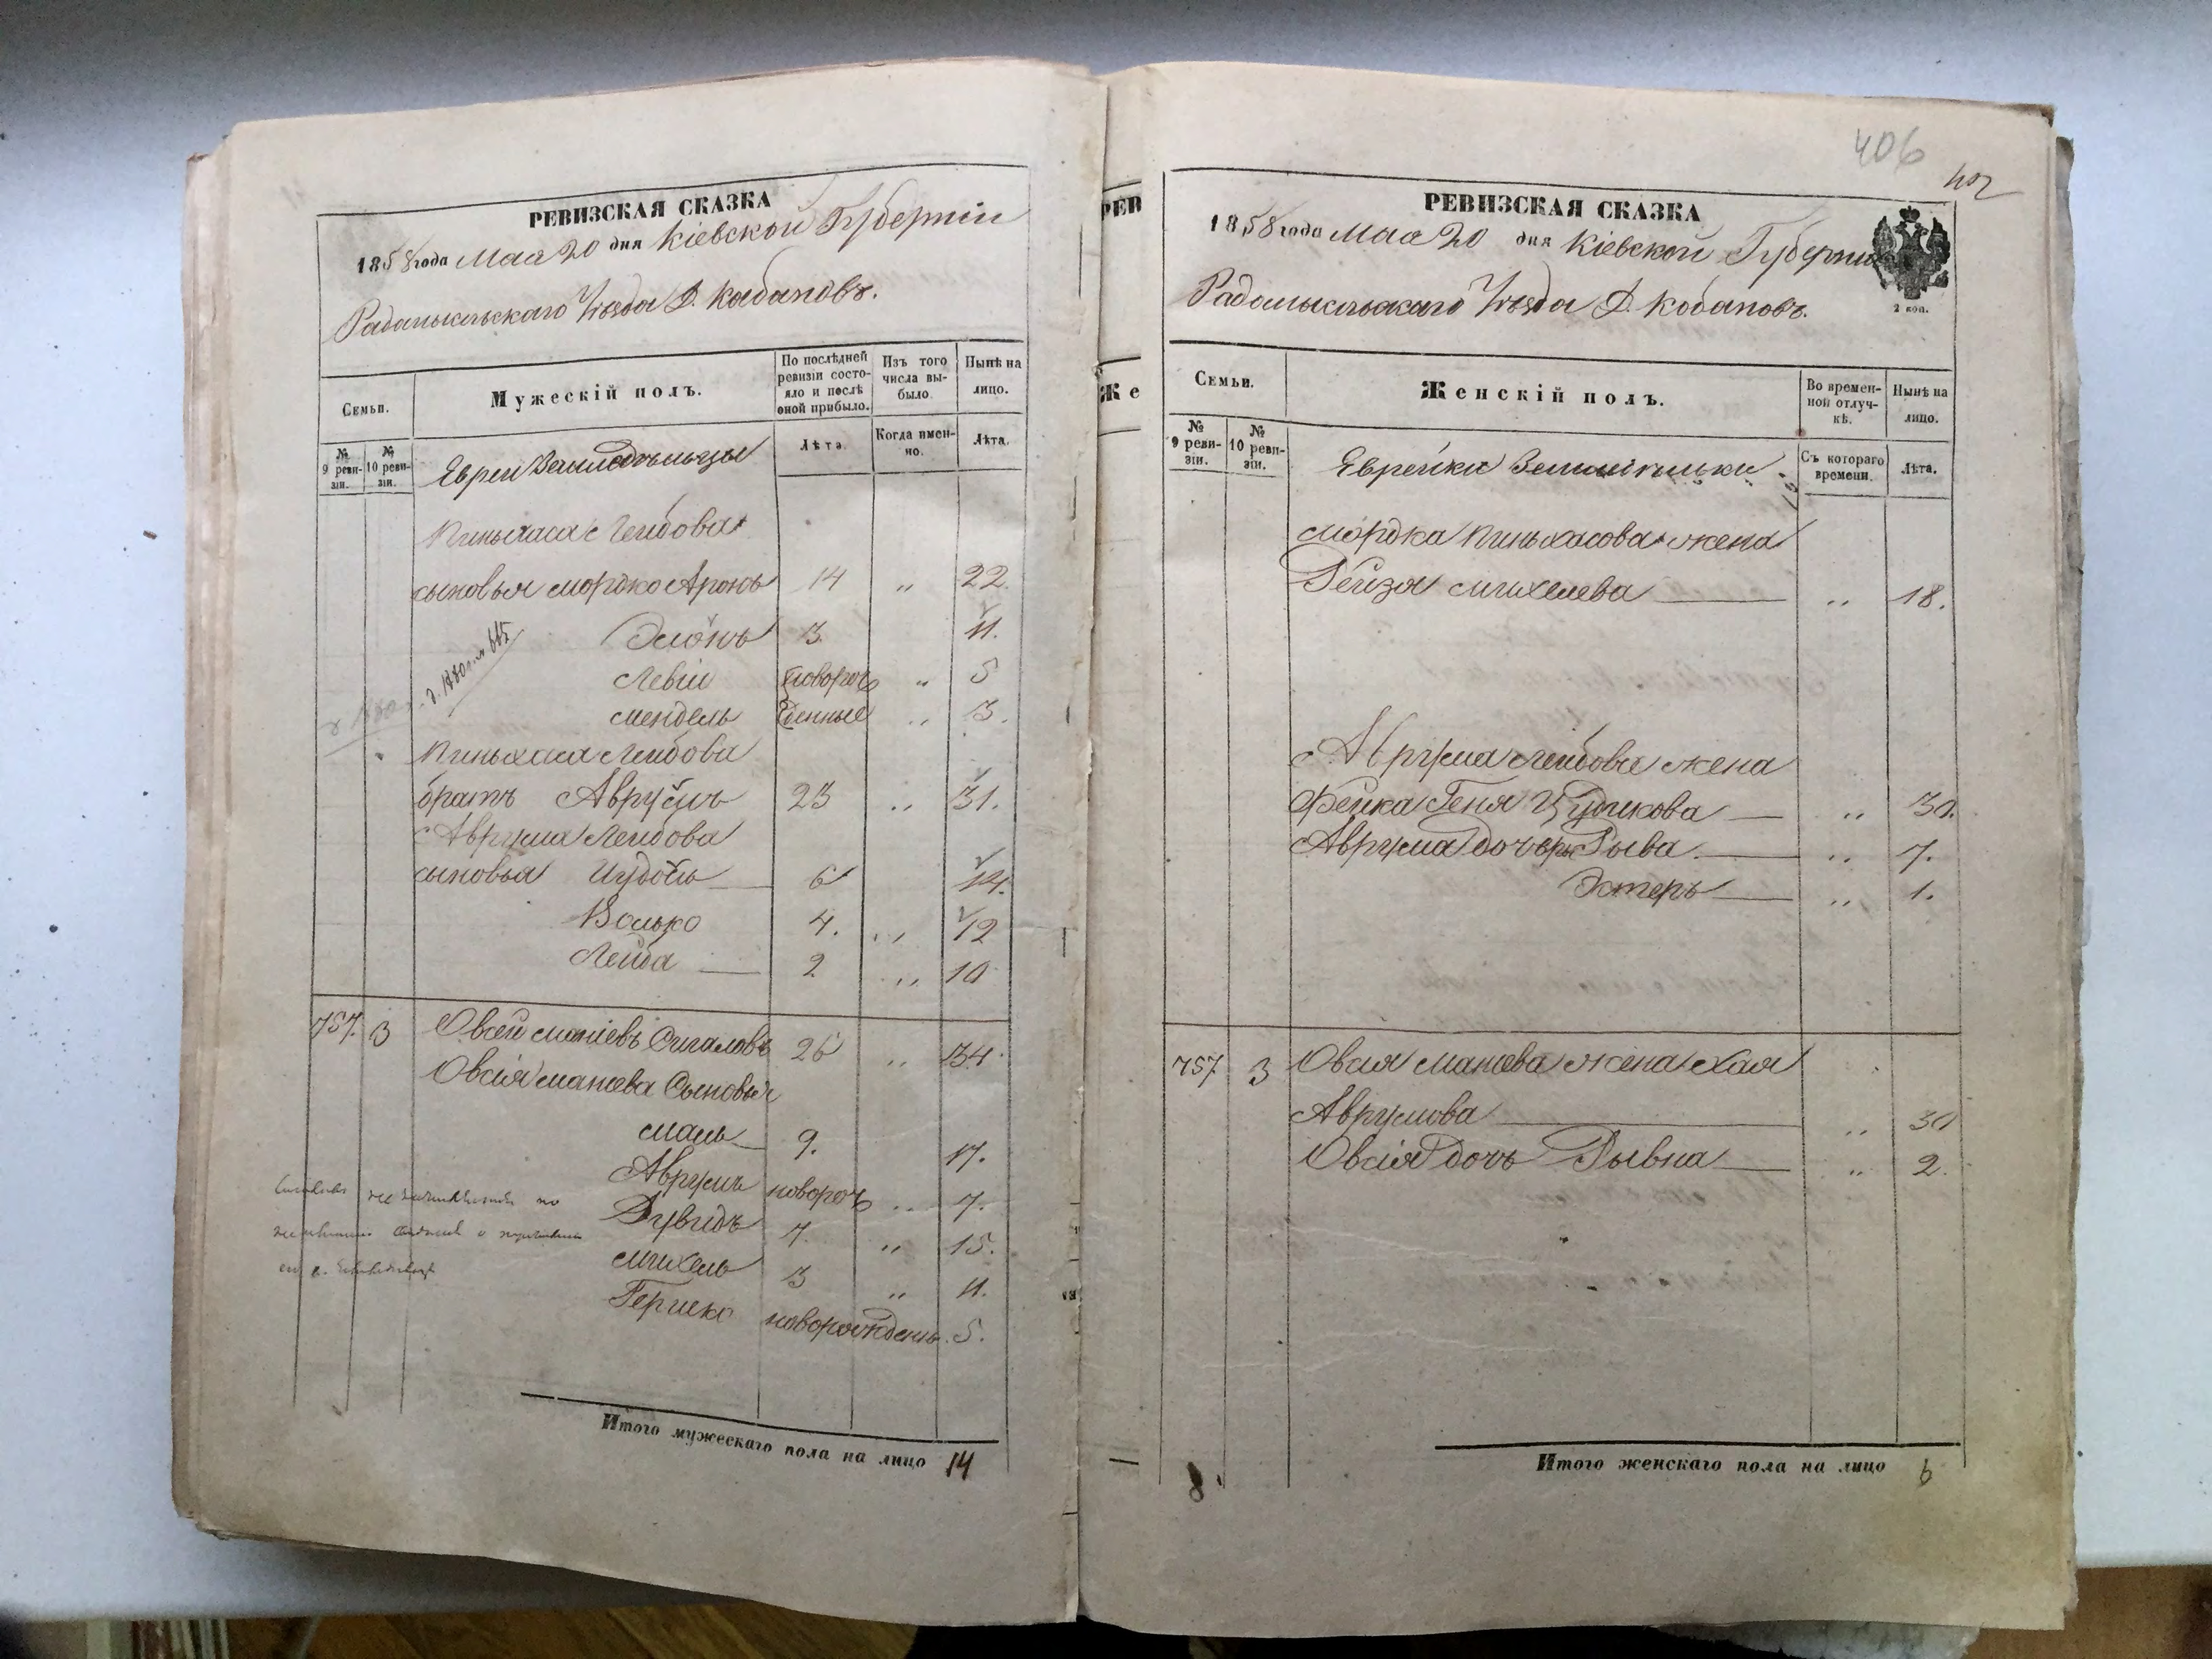 РЕВИЗСКАЯ СКАЗКА
1858 года Мая 20 дня Кіевской Губерніи
Радомысльскаго Уѣзда Д. Кабановъ.
Семьи.
Мужескій полъ.
По послѣдней ревизіи состояло и послѣ оной прибыло.
Изъ того числа выбыло.
Нынѣ на лицо.
№ 9 ревизіи.
№ 10 ревизіи.
Евреи Земледѣльцы
Лѣта.
Когда именно.
Лѣта.
Пиньхаса Лейбова
сыновья Мордко Аронъ 14 " 22.
3. 11.
Левій новорож " 5
Мендель денные " 3.
Пиньхаса Лейбова
братъ Аврумъ 23 " 31.
Аврума Лейбова
сыновья Иудоль 6 14.
Волько 4. " 12
Лейба 2 " 10
757. 3 Овсей Маніевъ Сигаловъ 26 " 34.
Овсія Маніева Сыновья
Мань 9. 17.
Аврумъ новорож " 7.
Дувидъ 7. " 15.
Михель 3 " 11.
Гершко новорожденъ. 5.
Итого мужескаго пола на лицо 14
РЕВ
Же
406
402
РЕВИЗСКАЯ СКАЗКА
1858 года Мая 20 дня Кіевской Губерніи
2 коп.
Радомысльскаго Уѣзда Д. Кобановъ.
Семьи.
Женскій полъ.
Во временной отлучкѣ.
Нынѣ на лицо.
№ 9 ревизіи.
№ 10 ревизіи.
Еврейки
Съ котораго времени.
Лѣта.
Мордка Пиньхасова жена
Рейзя Михелева " 18.
Аврума Лейбова жена
Фейка Геня Цудикова " 30.
Аврума дочери Рыва " 7.
Эстеръ " 1.
757 3 Овсія Маніева жена Хая
Аврумова " 30
Овсія дочь Рывка " 2.
8
Итого женскаго пола на лицо 6